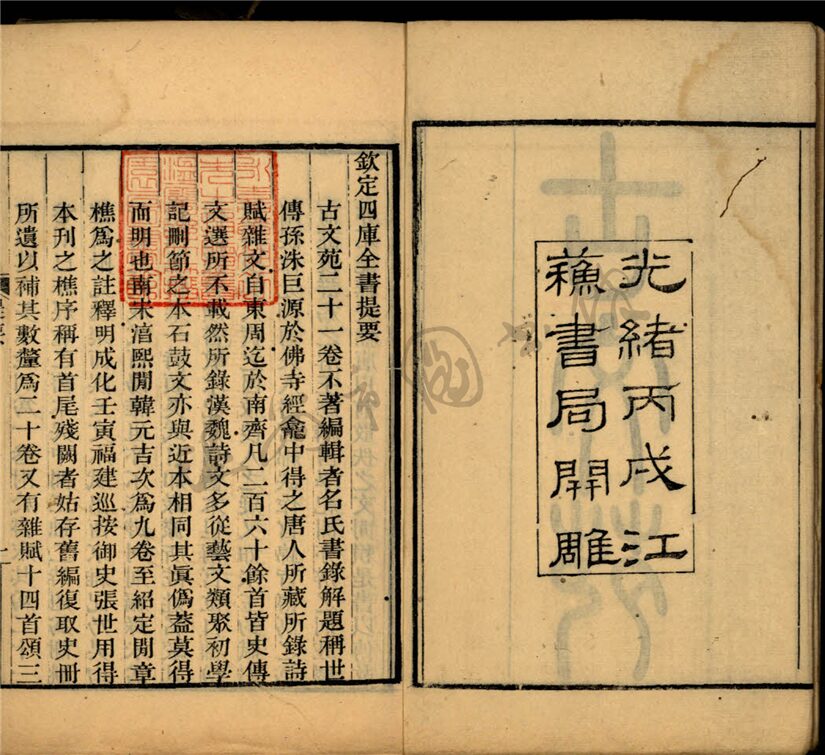 光緒丙戌江
蘇書局開雕
欽定四庫全書提要
古文苑二十一卷不著編輯者名氏書錄解題稱世
傳孫洙巨源於佛寺經龕中得之唐人所藏所錄詩
賦雜文自東周迄於南齊凡二百六十餘首皆史傳
文選所不載然所錄漢魏詩文多從藝文類聚初學
記刪節之本石鼓文亦與近本相同其眞僞葢莫得
而明也南宋淳熙閒韓元吉次爲九卷至紹定閒章
樵爲之註釋明成化壬寅福建巡按御史張世用得
本刊之樵序稱有首尾殘闕者姑存舊編復取史冊
所遺以補其數釐爲二十卷又有雜賦十四首頌三